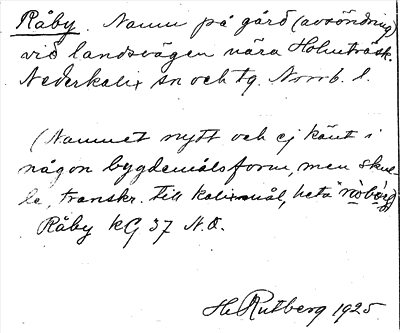 Råby. Namn på gård (avsöndring)
vid landsvägen nära Holmträsk.
Nederkalix sn och tg. Norrb. l.
(Namnet nytt och ej känt i
någon bygdemålsform, men skul-
le, transkr. till kalixmål, heta
Råby kG 37 N.O.
H. Rutberg 1925